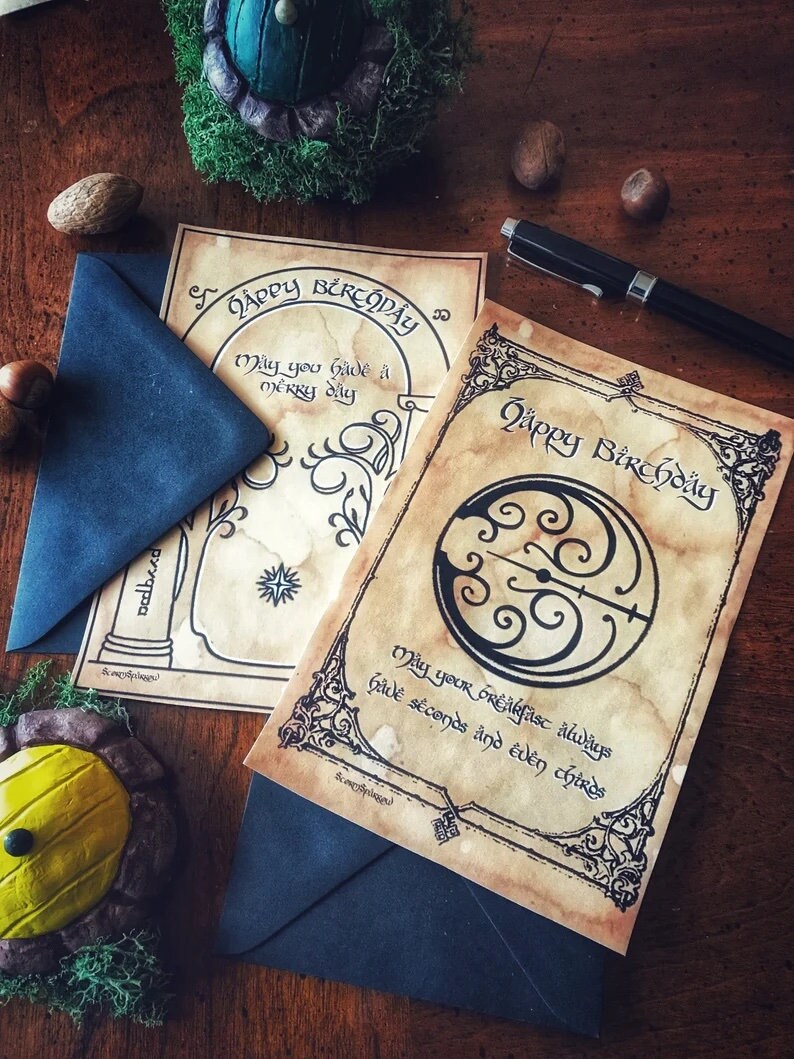 Happy Birthday
May you have a
merry day
StormSparrow
Happy Birthday
May your breakfast always
have seconds and even thirds
StormSparrow